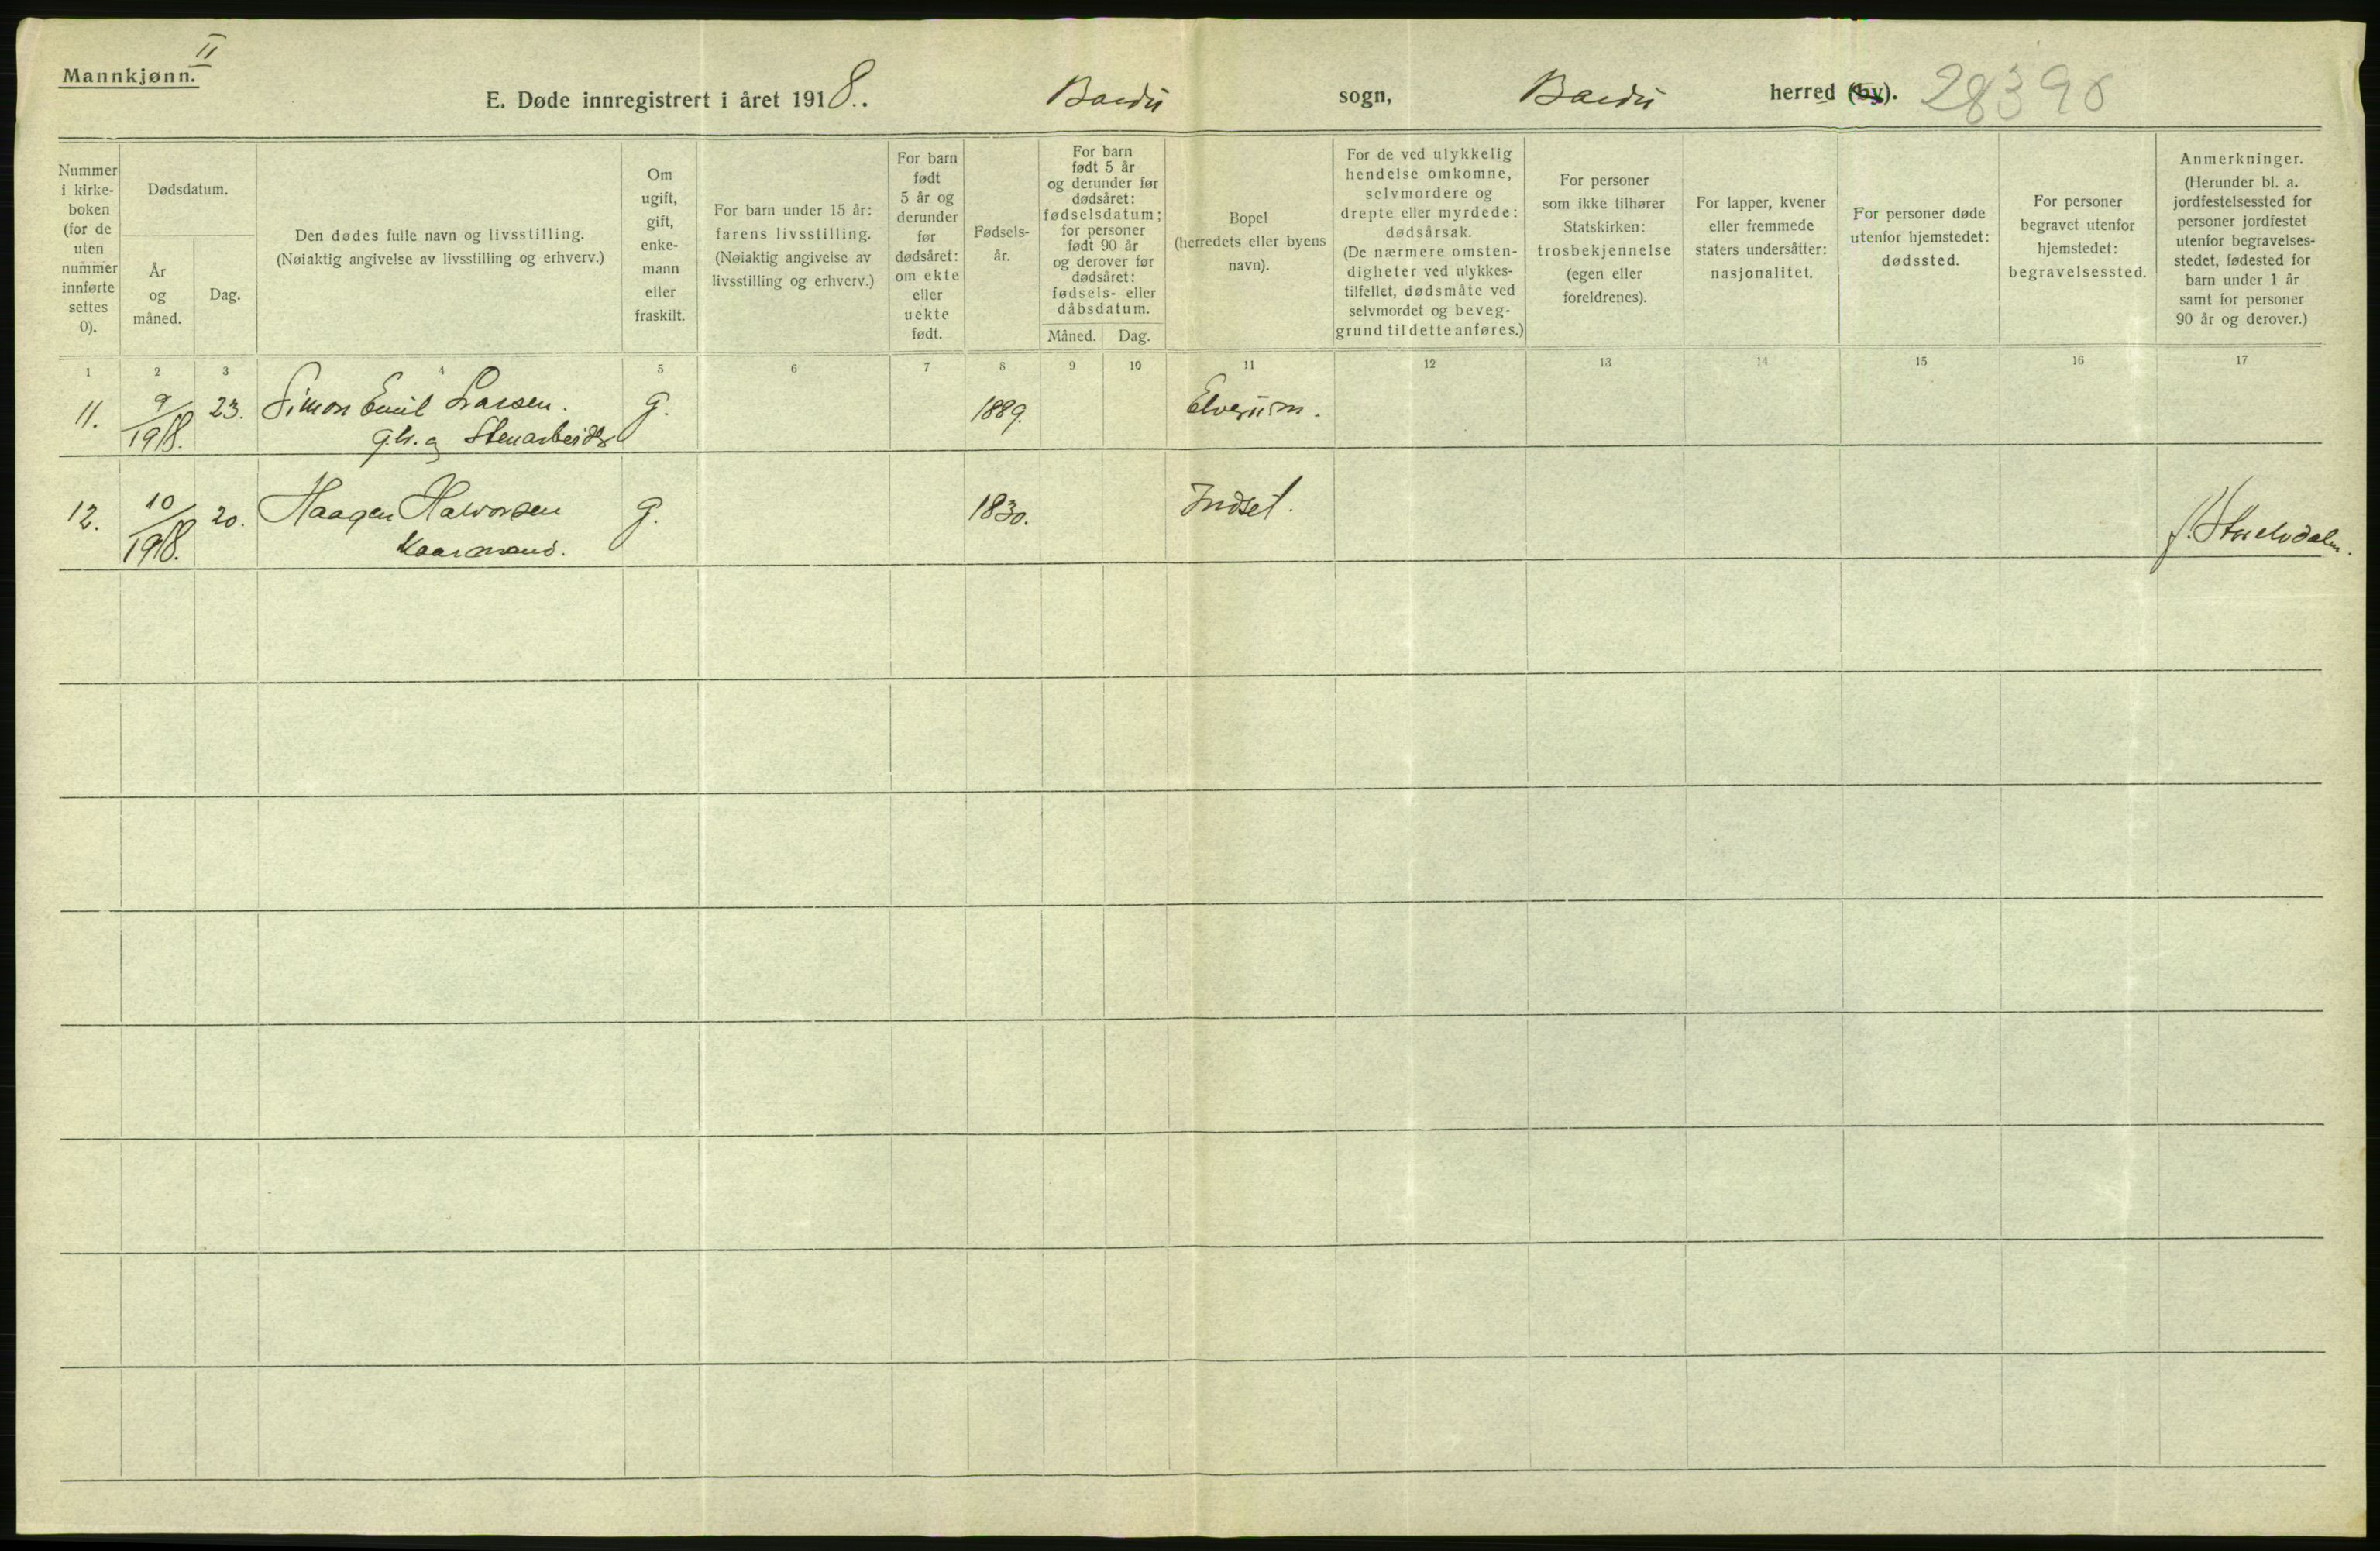 Mannkjønn. II
E. Døde innregistrert i året 1918. Bardu sogn, Bardu herred (by).
Nummer i kirke-boken (for de uten nummer innførte settes 0).
Dødsdatum.
År og måned.
Dag.
Den dødes fulle navn og livsstilling.
(Nøiaktig angivelse av livsstilling og erhverv.)
Om ugift, gift, enke-mann eller fraskilt.
For barn under 15 år: farens livsstilling. (Nøiaktig angivelse av livsstilling og erhverv.)
For barn født 5 år og derunder før dødsåret: om ekte eller uekte født.
Fødsels-år.
For barn født 5 år og derunder før dødsåret: fødselsdatum; for personer født 90 år og derover før dødsåret: fødsels- eller dåbsdatum.
Måned. Dag.
Bopel (herredets eller byens navn).
For de ved ulykkelig hendelse omkomne, selvmordere og drepte eller myrdede: dødsårsak. (De nærmere omsten-digheter ved ulykkes-tilfellet, dødsmåte ved selvmordet og beveg-grund til dette anføres.)
For personer som ikke tilhører Statskirken: trosbekjennelse (egen eller foreldrenes).
For lapper, kvener eller fremmede staters undersåtter: nasjonalitet.
For personer døde utenfor hjemstedet: dødssted.
For personer begravet utenfor hjemstedet: begravelsessted.
Anmerkninger. (Herunder bl. a. jordfestelsessted for personer jordfestet utenfor begravelses-stedet, fødested for barn under 1 år samt for personer 90 år og derover.)
1 2 3 4 5 6 7 8 9 10 11 12 13 14 15 16 17
11. 9/1918. 23. Simon Emil Larsen. g. 1889. Elverum.
gbr. og Stenarbeider
12. 10/1918. 20. Haagen Halvorsen g. 1830. Indset. f. Storelvdalen.
Kaarmand.